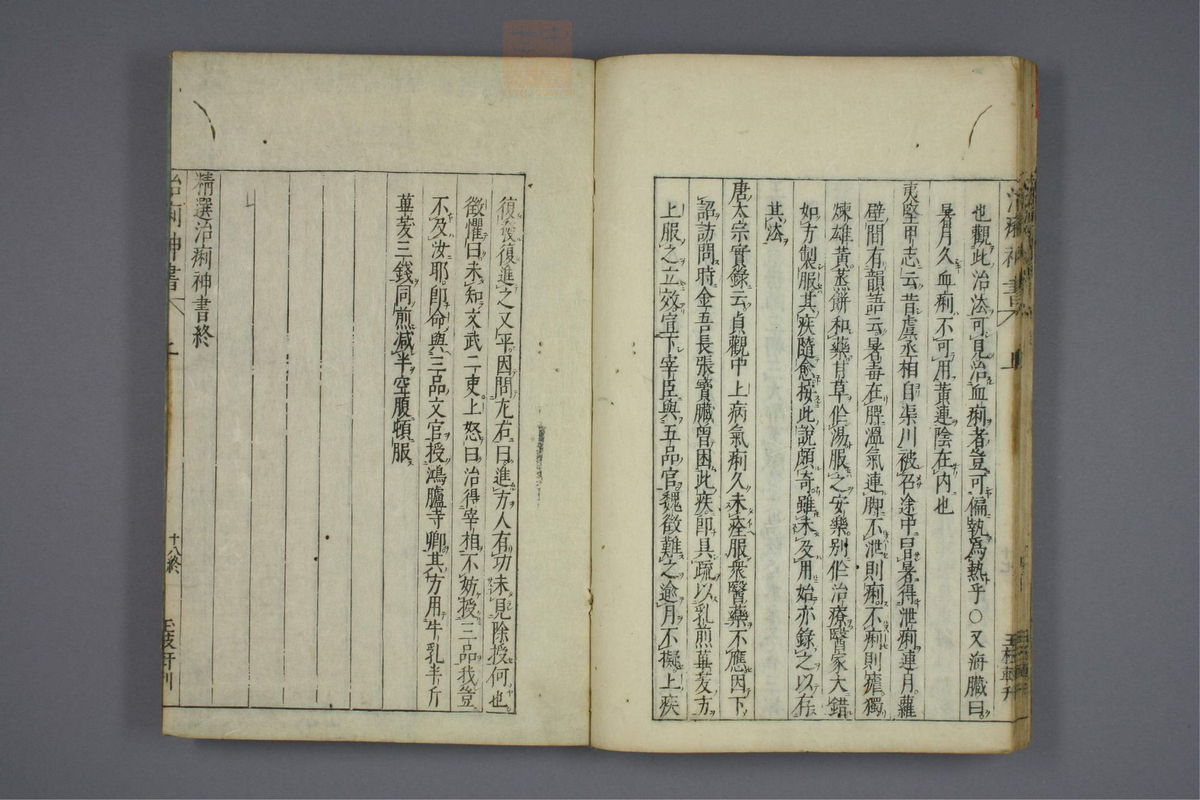 也觀此治法可見治血痢者豈可偏執爲熱乎○又海臟曰
暑月久血痢不可用黃連陰在内也
夷堅甲志云昔虞丞相自渠川被召途中冒暑得泄痢連月蘿
壁間有韻語云暑毒在脾溫氣連脚不泄則痢不痢則瘧獨
煉雄黃蒸餅和藥甘草作湯服之安樂别作治療醫家大錯
如方製服其疾隨愈按此說頗奇雖未及用始亦錄之以存
其法
唐太宗實錄云貞觀中上病氣痢久未痊服衆醫藥不應因下
詔訪問時金吾長張寶臟曽困此疾即具疏以乳煎蓽茇方
上服之立效宣下宰臣與五品官魏徵難之逾月不擬上疾
復發復進之又平因問左右曰進方人有功未見除授何也
徵懼曰未知文武二吏上怒曰治得宰相不妨授三品我豈
不及汝耶即命與三品文官授鴻臚寺卿其方用牛乳半斤
蓽茇三錢同煎减半空腹頓服
精選治痢神書終
治痢神書
十八終